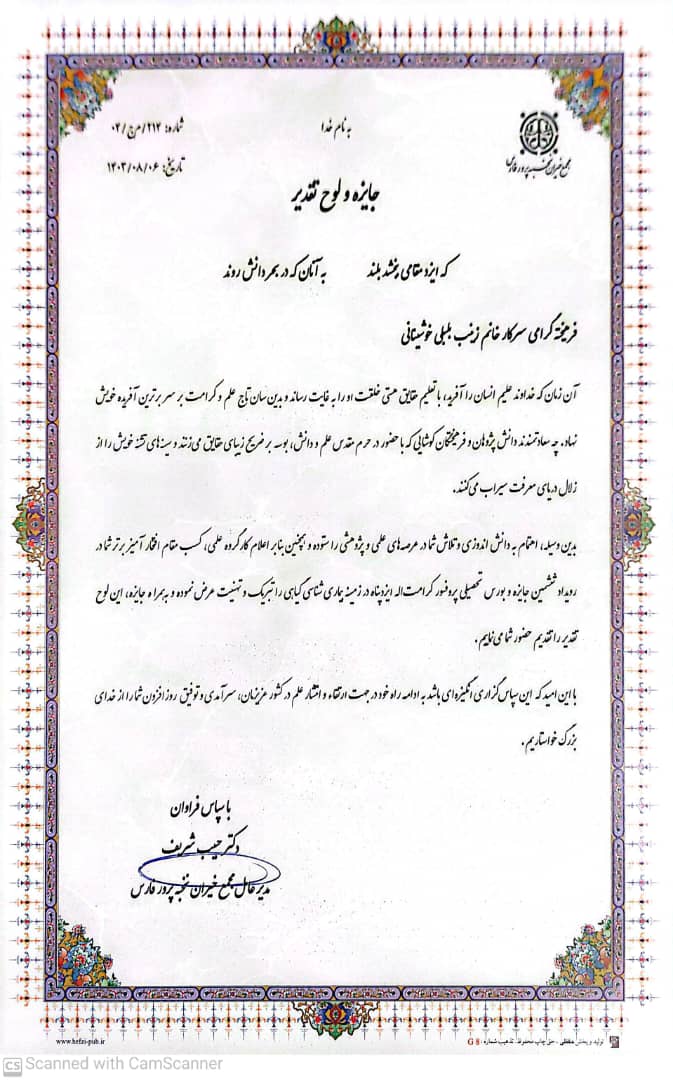 به نام خدا
شماره: ۲۱۳/م‌ج/۰۳
تاریخ: ۱۴۰۳/۰۸/۰۶
مجمع خیران نخبه پرور فارس
جایزه و لوح تقدیر
که ایزد مقامی ببخشد بلند به آنان که در بحر دانش روند
فرهیخته گرامی سرکار خانم زینب بلبلی خوشینانی
آن زمان که خداوند علیم انسان را آفرید، با تعلیم حقایق هستی خلقت او را به غایت رساند و بدین سان تاج علم و کرامت بر سر برترین آفریده خویش
نهاد. چه سعادتمندند دانش پژوهان و فرهیختگان کوشایی که با حضور در حرم مقدس علم و دانش، بوسه بر ضریح زیبای حقایق می‌زنند و سینه‌های تشنه خویش را از
زلال دریای معرفت سیراب می‌کنند.
بدین وسیله، اهتمام به دانش اندوزی و تلاش شما در عرصه‌های علمی و پژوهشی را ستوده و همچنین بنابر اعلام کارگروه علمی، کسب مقام افتخار آمیز برتر شما در
رویداد ششمین جایزه و بورس تحصیلی پروفسور کرامت‌اله ایزدپناه در زمینه بیماری شناسی گیاهی را تبریک و تهنیت عرض نموده و به همراه جایزه، این لوح
تقدیر را تقدیم حضور شما می‌نماییم.
با این امید که این سپاس‌گزاری انگیزه‌ای باشد به ادامه راه خود در جهت ارتقاء و انتشار علم در کشور عزیزمان، سرآمدی و توفیق روز افزون شما را از خدای
بزرگ خواستاریم.
با سپاس فراوان
دکتر حبیب شریف
مدیر عامل مجمع خیران نخبه پرور فارس
www.hefzi-pub.ir
تولید و پخش حفظی - حق چاپ محفوظ. تذهیب شماره: G 8
CS Scanned with CamScanner